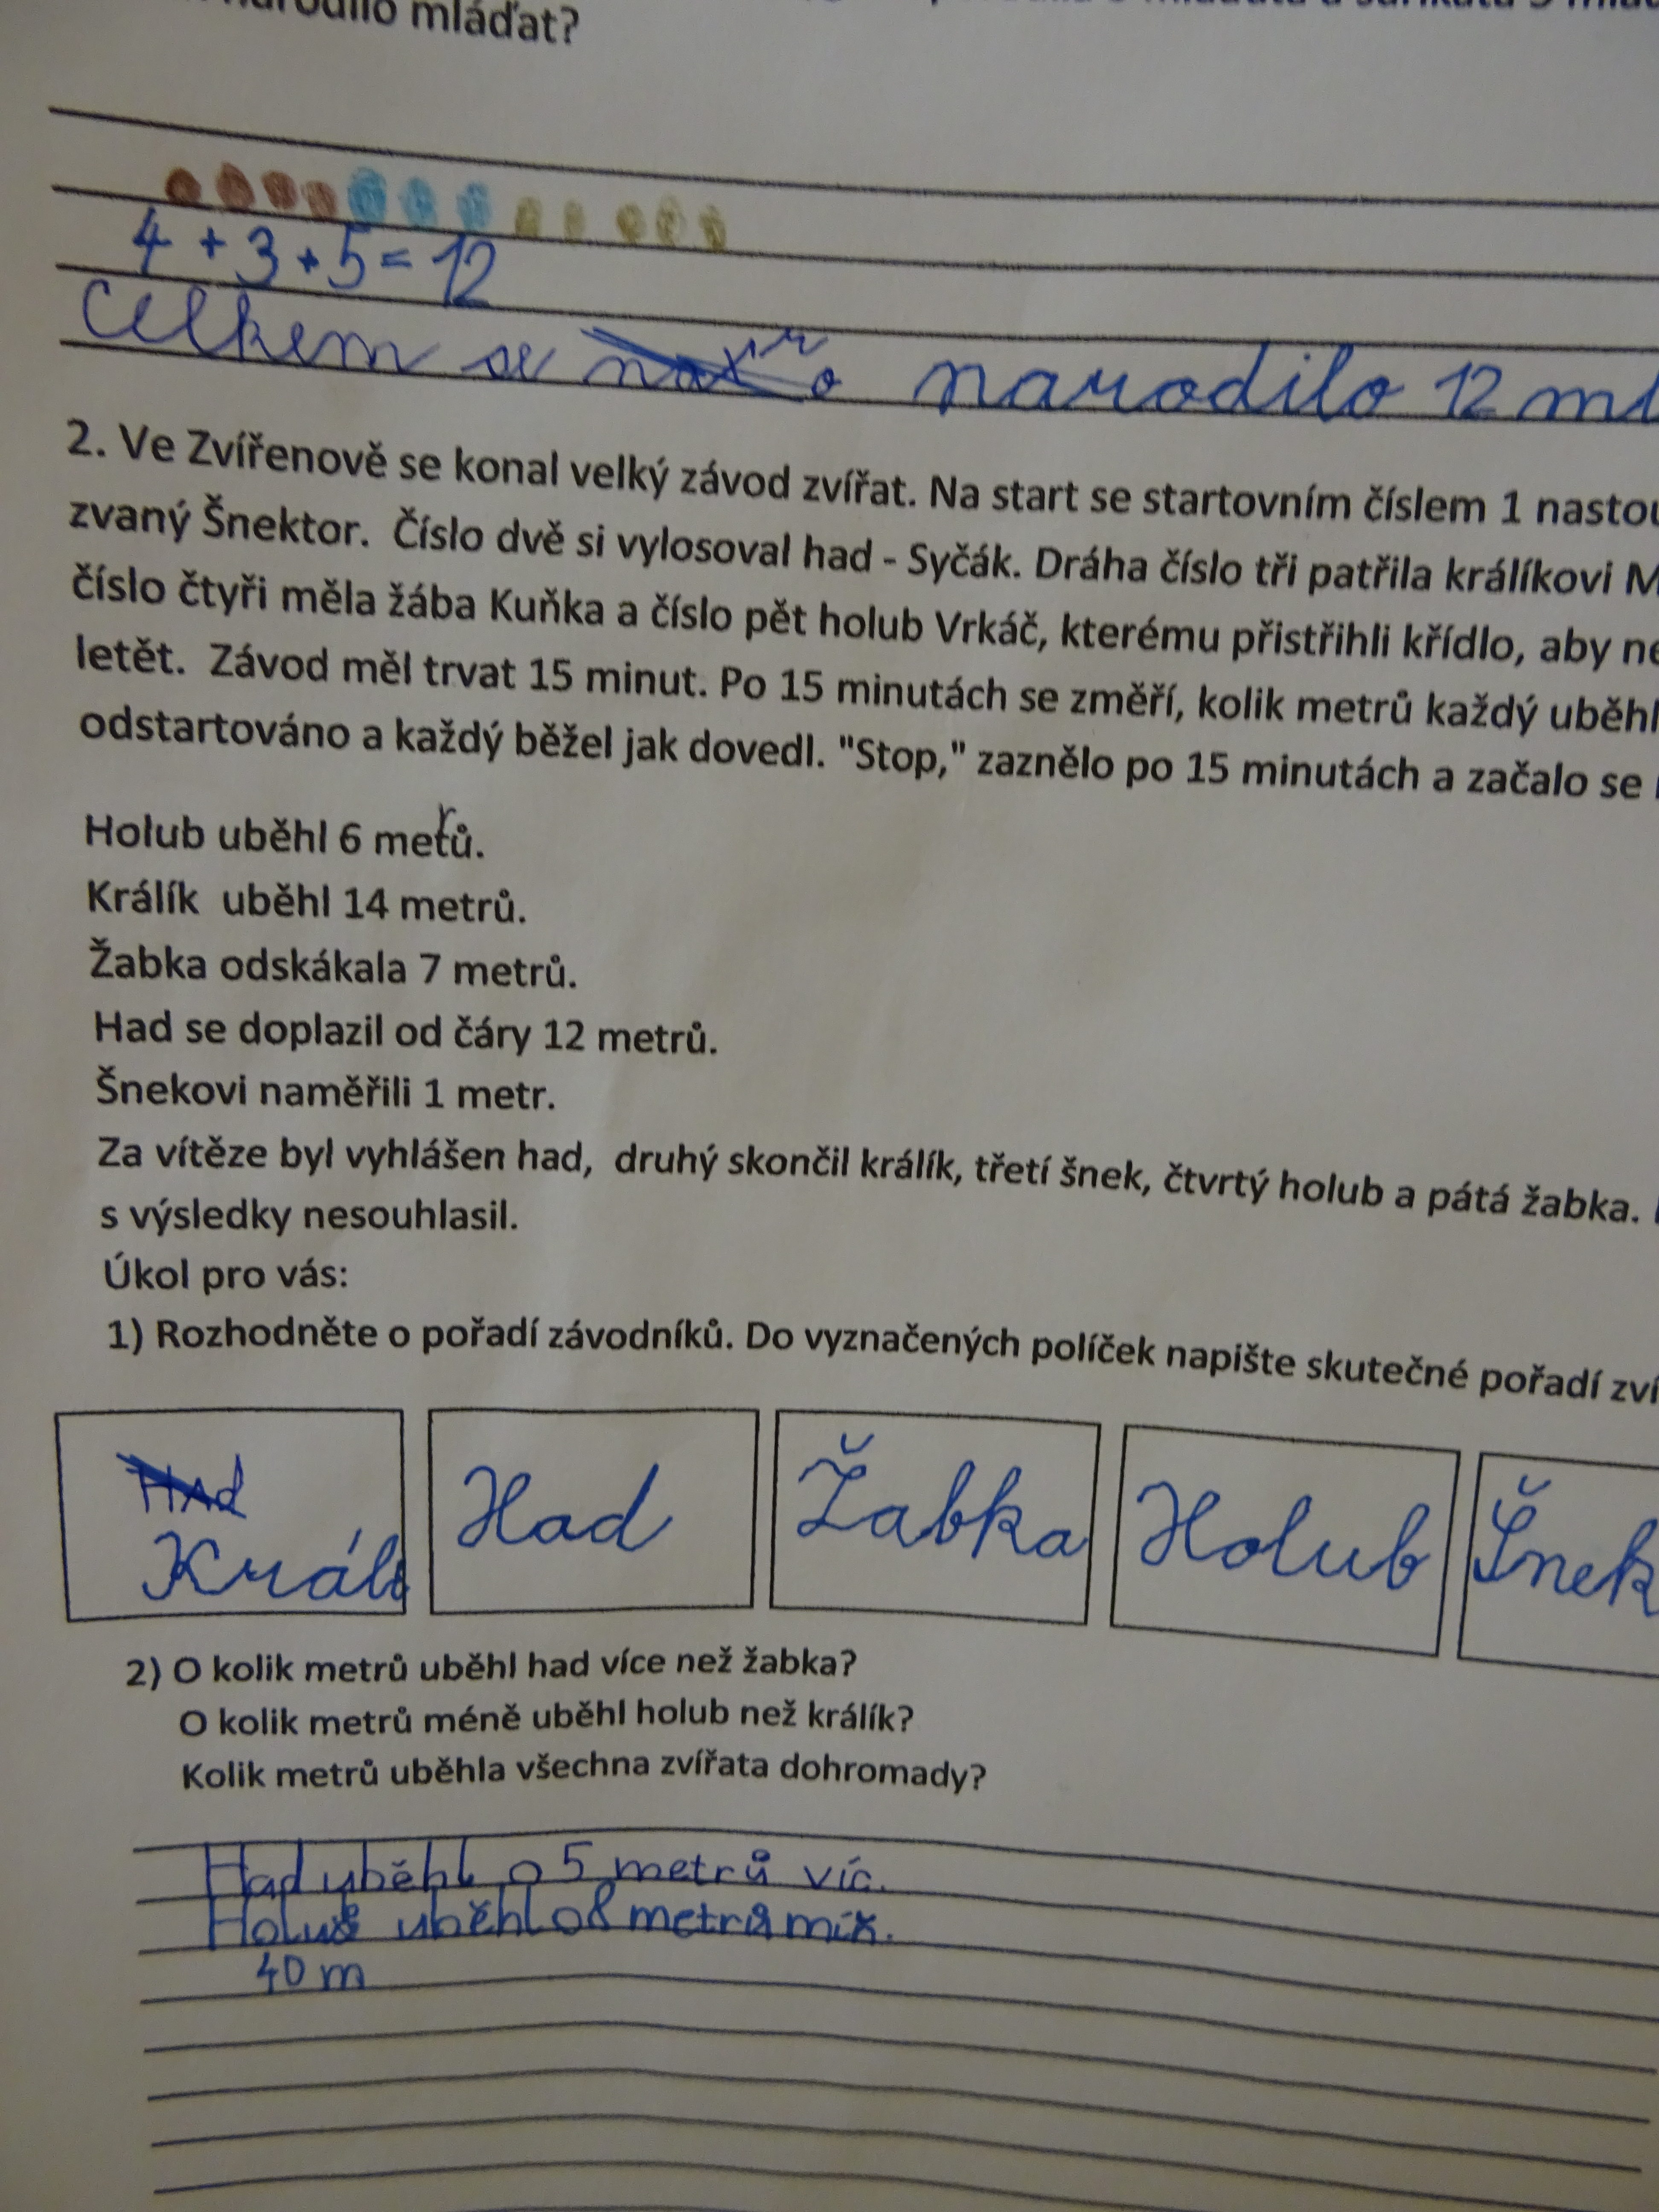 mláďat?
4 + 3 + 5 = 12
Celkem se narodilo 12 ml
2. Ve Zvířenově se konal velký závod zvířat. Na start se startovním číslem 1 nastou
zvaný Šnektor. Číslo dvě si vylosoval had - Syčák. Dráha číslo tři patřila králíkovi M
číslo čtyři měla žába Kuňka a číslo pět holub Vrkáč, kterému přistřihli křídlo, aby ne
letět. Závod měl trvat 15 minut. Po 15 minutách se změří, kolik metrů každý uběhl
odstartováno a každý běžel jak dovedl. "Stop," zaznělo po 15 minutách a začalo se
Holub uběhl 6 metrů.
Králík uběhl 14 metrů.
Žabka odskákala 7 metrů.
Had se doplazil od čáry 12 metrů.
Šnekovi naměřili 1 metr.
Za vítěze byl vyhlášen had, druhý skončil králík, třetí šnek, čtvrtý holub a pátá žabka.
s výsledky nesouhlasil.
Úkol pro vás:
1) Rozhodněte o pořadí závodníků. Do vyznačených políček napište skutečné pořadí zví
HAd
Králí Had Žabka Holub Šnek
2) O kolik metrů uběhl had více než žabka?
O kolik metrů méně uběhl holub než králík?
Kolik metrů uběhla všechna zvířata dohromady?
Had uběhl o 5 metrů víc.
Holub uběhl o 8 metrů
40 m